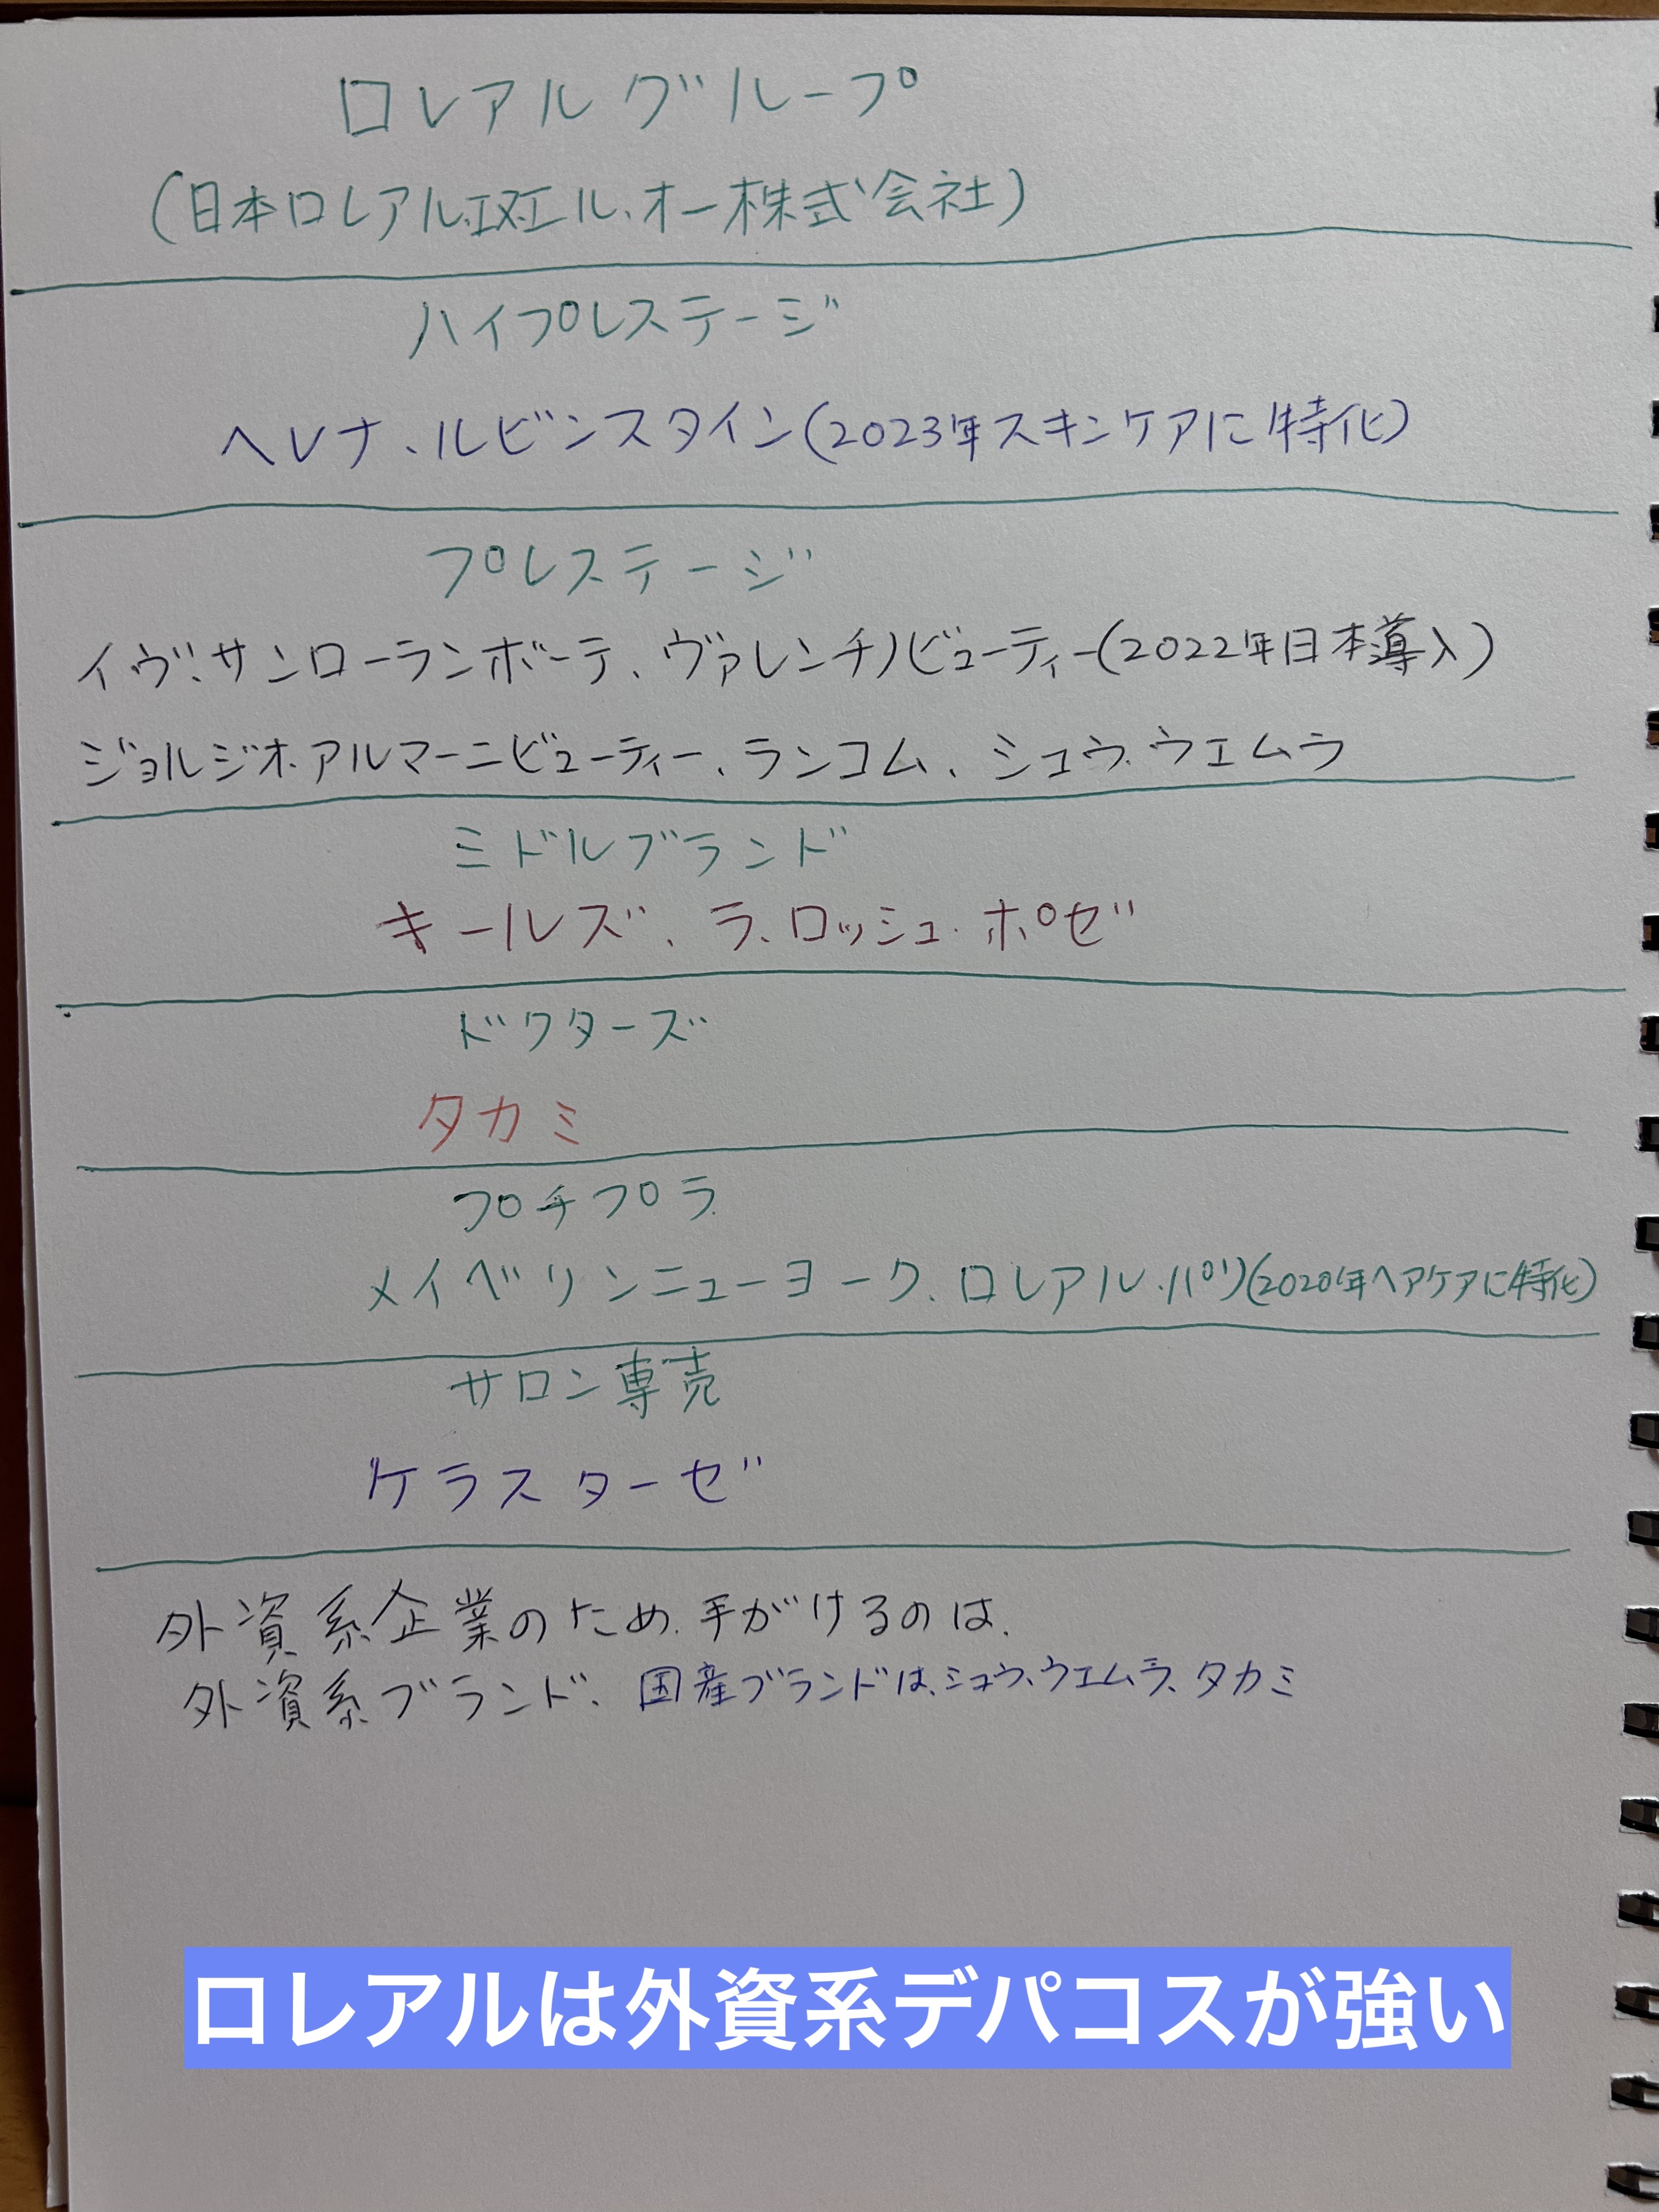 ロレアルグループ
(日本ロレアル、エヌ・エル・オー株式会社)
ハイプレステージ
ヘレナ・ルビンスタイン(2023年スキンケアに特化)
プレステージ
イヴ・サンローランボーテ、ヴァレンチノビューティー(2022年日本導入)
ジョルジオ・アルマーニビューティー、ランコム、シュウ・ウエムラ
ミドルブランド
キールズ、ラ・ロッシュ・ポゼ
ドクターズ
タカミ
プチプラ
メイベリンニューヨーク、ロレアル・パリ(2020年ヘアケアに特化)
サロン専売
ケラスターゼ
外資系企業のため、手がけるのは、
外資系ブランド、国産ブランドは、シュウ・ウエムラ、タカミ
ロレアルは外資系デパコスが強い